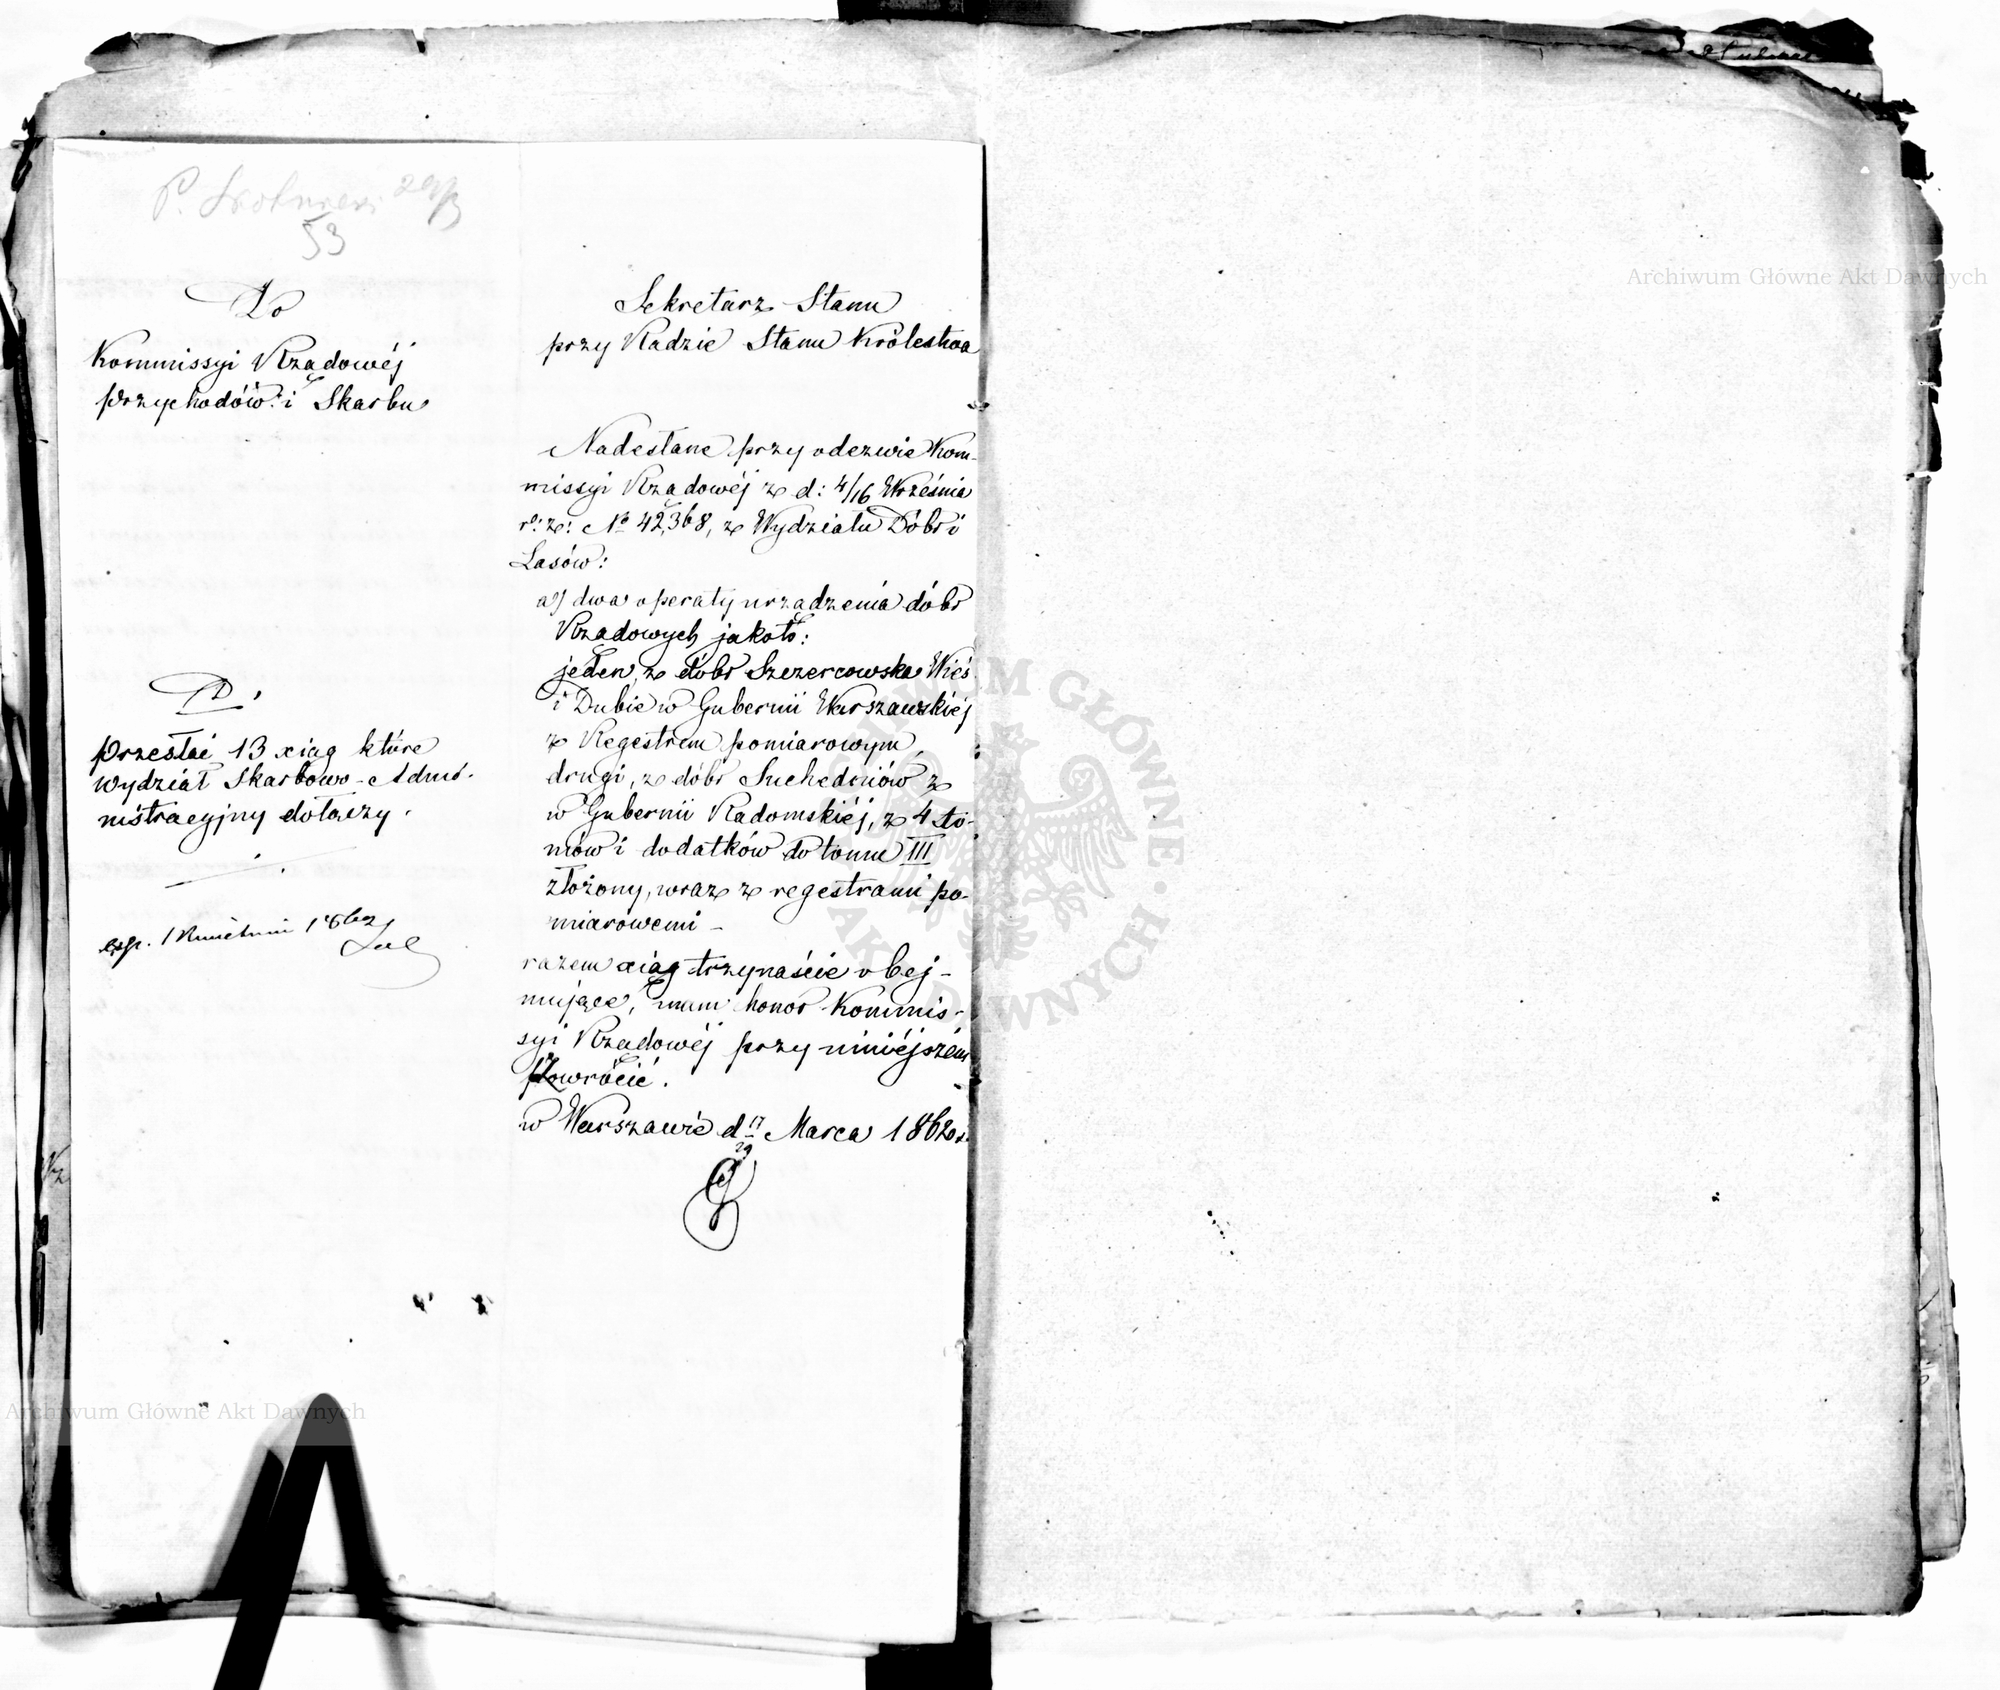 P. 29/3
53
Do
Kommissyi Rządowéj
Przychodów i Skarbu
D.
Przesłać 13 xiąg które
wydział Skarbowo-Admi-
nistracyjny dołączy.
exp. 1 Kwietnia 1862
Sekretarz Stanu
przy Radzie Stanu Królestwa
Nadesłane przy odezwie Kom-
missyi Rządowéj z d: 4/16 Września
r: z: No 42,368, z Wydziału Dóbr i
Lasów:
a) dwa operaty urządzenia dóbr
Rządowych jakoto:
jeden, z dóbr Szczercowska Wieś
i Dubie w Gubernii Warszawskiéj
z Regestrem pomiarowym,
drugi, z dóbr Suchedniów z
w Gubernii Radomskiéj, z 4 to-
mów i dodatków do tomu III
złożony, wraz z regestrami po-
miarowemi -
razem xiąg trzynaście obej-
mujące, mam honor Kommis-
syi Rządowéj przy niniéjszém
powrócić.
w Warszawie d 17/29 Marca 1862 r.
Archiwum Główne Akt Dawnych
ARCHIWUM GŁÓWNE AKT DAWNYCH
Archiwum Główne Akt Dawnych